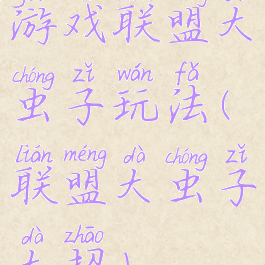 游戏联盟大
chóng zǐ wán fǎ
虫子玩法(
lián méng dà chóng zǐ
联盟大虫子
dà zhāo
大招)